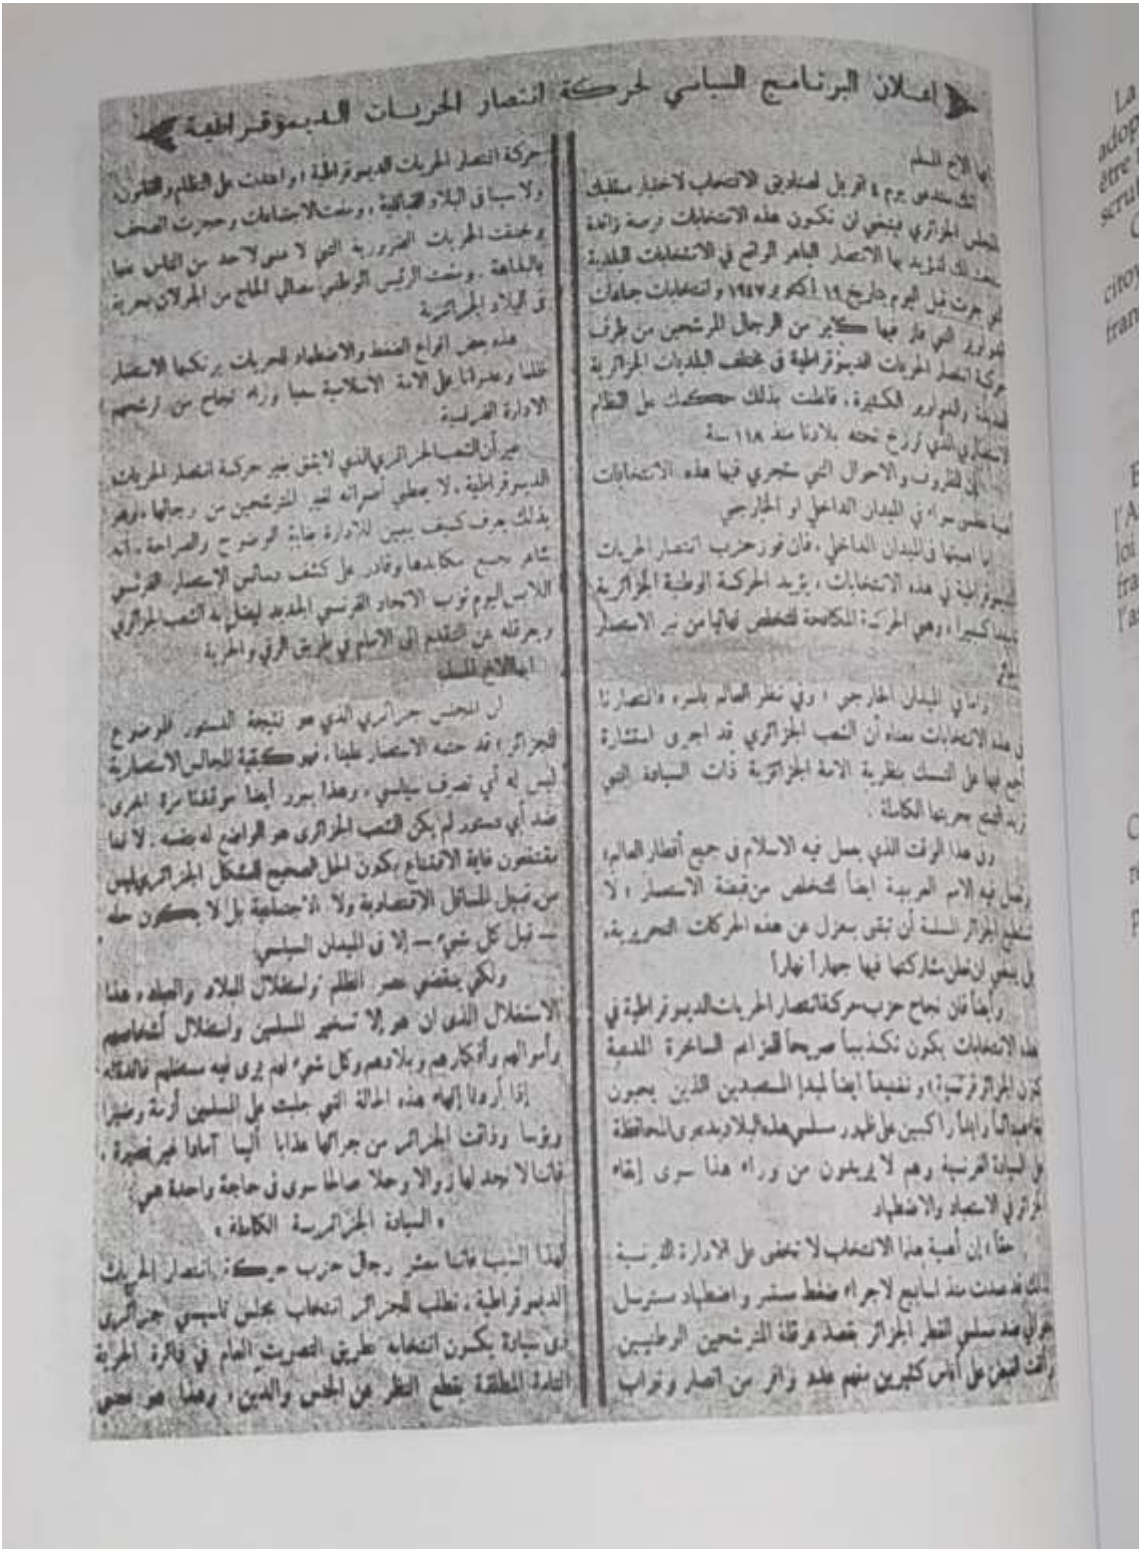 إعلان البرنامج السياسي لحركة انتصار الحريات الديموقراطية
أيها الاخ المسلم
انك ستدعى يوم ٤ افريل لصناديق الانتخاب لاختيار ممثليك
للمجلس الجزائري فينبغي ان تكون هذه الانتخابات فرصة زائدة
لتؤيد بها الانتصار الباهر الرائع في الانتخابات البلدية
التي جرت قبل اليوم بتاريخ ١٩ أكتوبر ١٩٤٧ وانتخابات جماعات
التي فاز فيها كثير من الرجال المرشحين من طرف
حركة انتصار الحريات الديموقراطية في مختلف البلديات الجزائرية
والدواوير الكثيرة، فأعطت بذلك حكمك على النظام
الاستعماري الذي ترزخ تحته بلادنا منذ ١١٨ سنة
إن الظروف والاحوال التي ستجري فيها هذه الانتخابات
سواء في الميدان الداخلي او الخارجي
اما اهميتها في الميدان الداخلي، فان فوز حزب انتصار الحريات
الديموقراطية في هذه الانتخابات، يؤيد الحركة الوطنية الجزائرية
تأييدا كبيرا، وهي الحركة المكافحة للتخلص نهائيا من نير الاستعمار
واما في الميدان الخارجي، وفي نظر العالم بأسره، فانتصارنا
في هذه الانتخابات معناه أن الشعب الجزائري قد اجرى استشارة
اجمع فيها على التمسك بنظرية الامة الجزائرية ذات السيادة التي
تريد التمتع بحريتها الكاملة.
وفي هذا الوقت الذي يعمل فيه الاسلام في جميع أقطار العالم،
وتعمل فيه الامم العربية ايضاً للتخلص من قبضة الاستعمار، لا
تستطيع الجزائر المسلمة أن تبقى بمعزل عن هذه الحركات التحريرية،
بل ينبغي ان تعلن مشاركتها فيها جهاراً نهاراً
وأيضاً فان نجاح حزب حركة انتصار الحريات الديموقراطية في
هذه الانتخابات يكون تكذيباً صريحاً للمزاعم الساخرة المدعية
كون الجزائر فرنسية، وتفنيداً ايضاً لمبدإ المستعمرين الذين يحبون
دائماً وابداً راكبين على ظهور مسلمي هذه البلاد بدعوى المحافظة
على السيادة الفرنسية وهم لا يريدون من وراء هذا سوى إبقاء
الجزائر في الاستعباد والاضطهاد
حقاً، إن أهمية هذا الانتخاب لا تخفى على الادارة الفرنسية
لذلك قد عمدت منذ اسابيع لاجراء ضغط مستمر واضطهاد مسترسل
ضد مسلمي القطر الجزائر بقصد عرقلة المترشحين الوطنيين
وألقت القبض على أناس كثيرين منهم عدد وافر من انصار ونواب
حركة انتصار الحريات الديموقراطية، واعتدت على النظام والقانون،
ولا سيما في البلاد القبائلية، ومنعت الاجتماعات وحجزت الصحف
وخنقت الحريات الضرورية التي لا غنى لاحد من الناس عنها
بالبداهة. ومنعت الرئيس الوطني مصالي الحاج من الجولان بحرية
في البلاد الجزائرية
هذه بعض انواع الضغط والاضطهاد للحريات يرتكبها الاستعمار
ظلما وعدوانا على الامة الاسلامية سعيا وراء نجاح من ترشحهم
الادارة الفرنسية
غير أن الشعب الجزائري الذي لا يثق بغير حركة انتصار الحريات
الديموقراطية، لا يعطي أصواته لغير المترشحين من رجالها، وهو
بذلك يعرف كيف يبين للادارة بغاية الوضوح والصراحة، أنه
شاعر بجميع مكائدها وقادر على كشف دسائس الاستعمار الفرنسي
اللابس اليوم ثوب الاتحاد الفرنسي الجديد ليضل به الشعب الجزائري
ويعرقله عن التقدم إلى الامام في طريق الرقي والحرية
ايها الاخ المسلم
ان المجلس جزائري الذي هو نتيجة الدستور الموضوع
للجزائر، قد حتمه الاستعمار علينا، فهو كبقية المجالس الاستعمارية
ليس له أي تصرف سياسي، وهذا يبرر أيضا موقفنا مرة اخرى
ضد أي دستور لم يكن الشعب الجزائري هو الواضع له بنفسه، لاننا
مقتنعون غاية الاقتناع بكون الحل الصحيح للمشكل الجزائري ليس
من قبيل المسائل الاقتصادية ولا الاجتماعية بل لا يكون حله
— قبل كل شيء — إلا في الميدان السياسي
ولكي ينقضي عصر الظلم واستغلال البلاد والعباد، هذا
الاستغلال الذي ان هو إلا تسخير المسلمين واستغلال أشخاصهم
وأموالهم وأفكارهم وبلادهم وكل شيء لهم
إذا أردنا إنهاء هذه الحالة التي جلبت على المسلمين أزمة وضررا
وبؤسا وذاقت الجزائر من جرائها عذابا أليما آمادا غير قصيرة،
فاننا لا نجد لها زوالا وحلا صالحا سوى في حاجة واحدة هي:
« السيادة الجزائرية الكاملة »
لهذا السبب فاننا معشر رجال حزب حركة انتصار الحريات
الديموقراطية، نطلب للجزائر انتخاب مجلس تأسيسي جزائري
ذي سيادة يكون انتخابه بطريق التصويت العام في دائرة الحرية
التامة المطلقة بقطع النظر عن الجنس والدين، وهذا هو معنى
La
adop
être
scru
citoy
fran
l'A
loi
fra
l'a